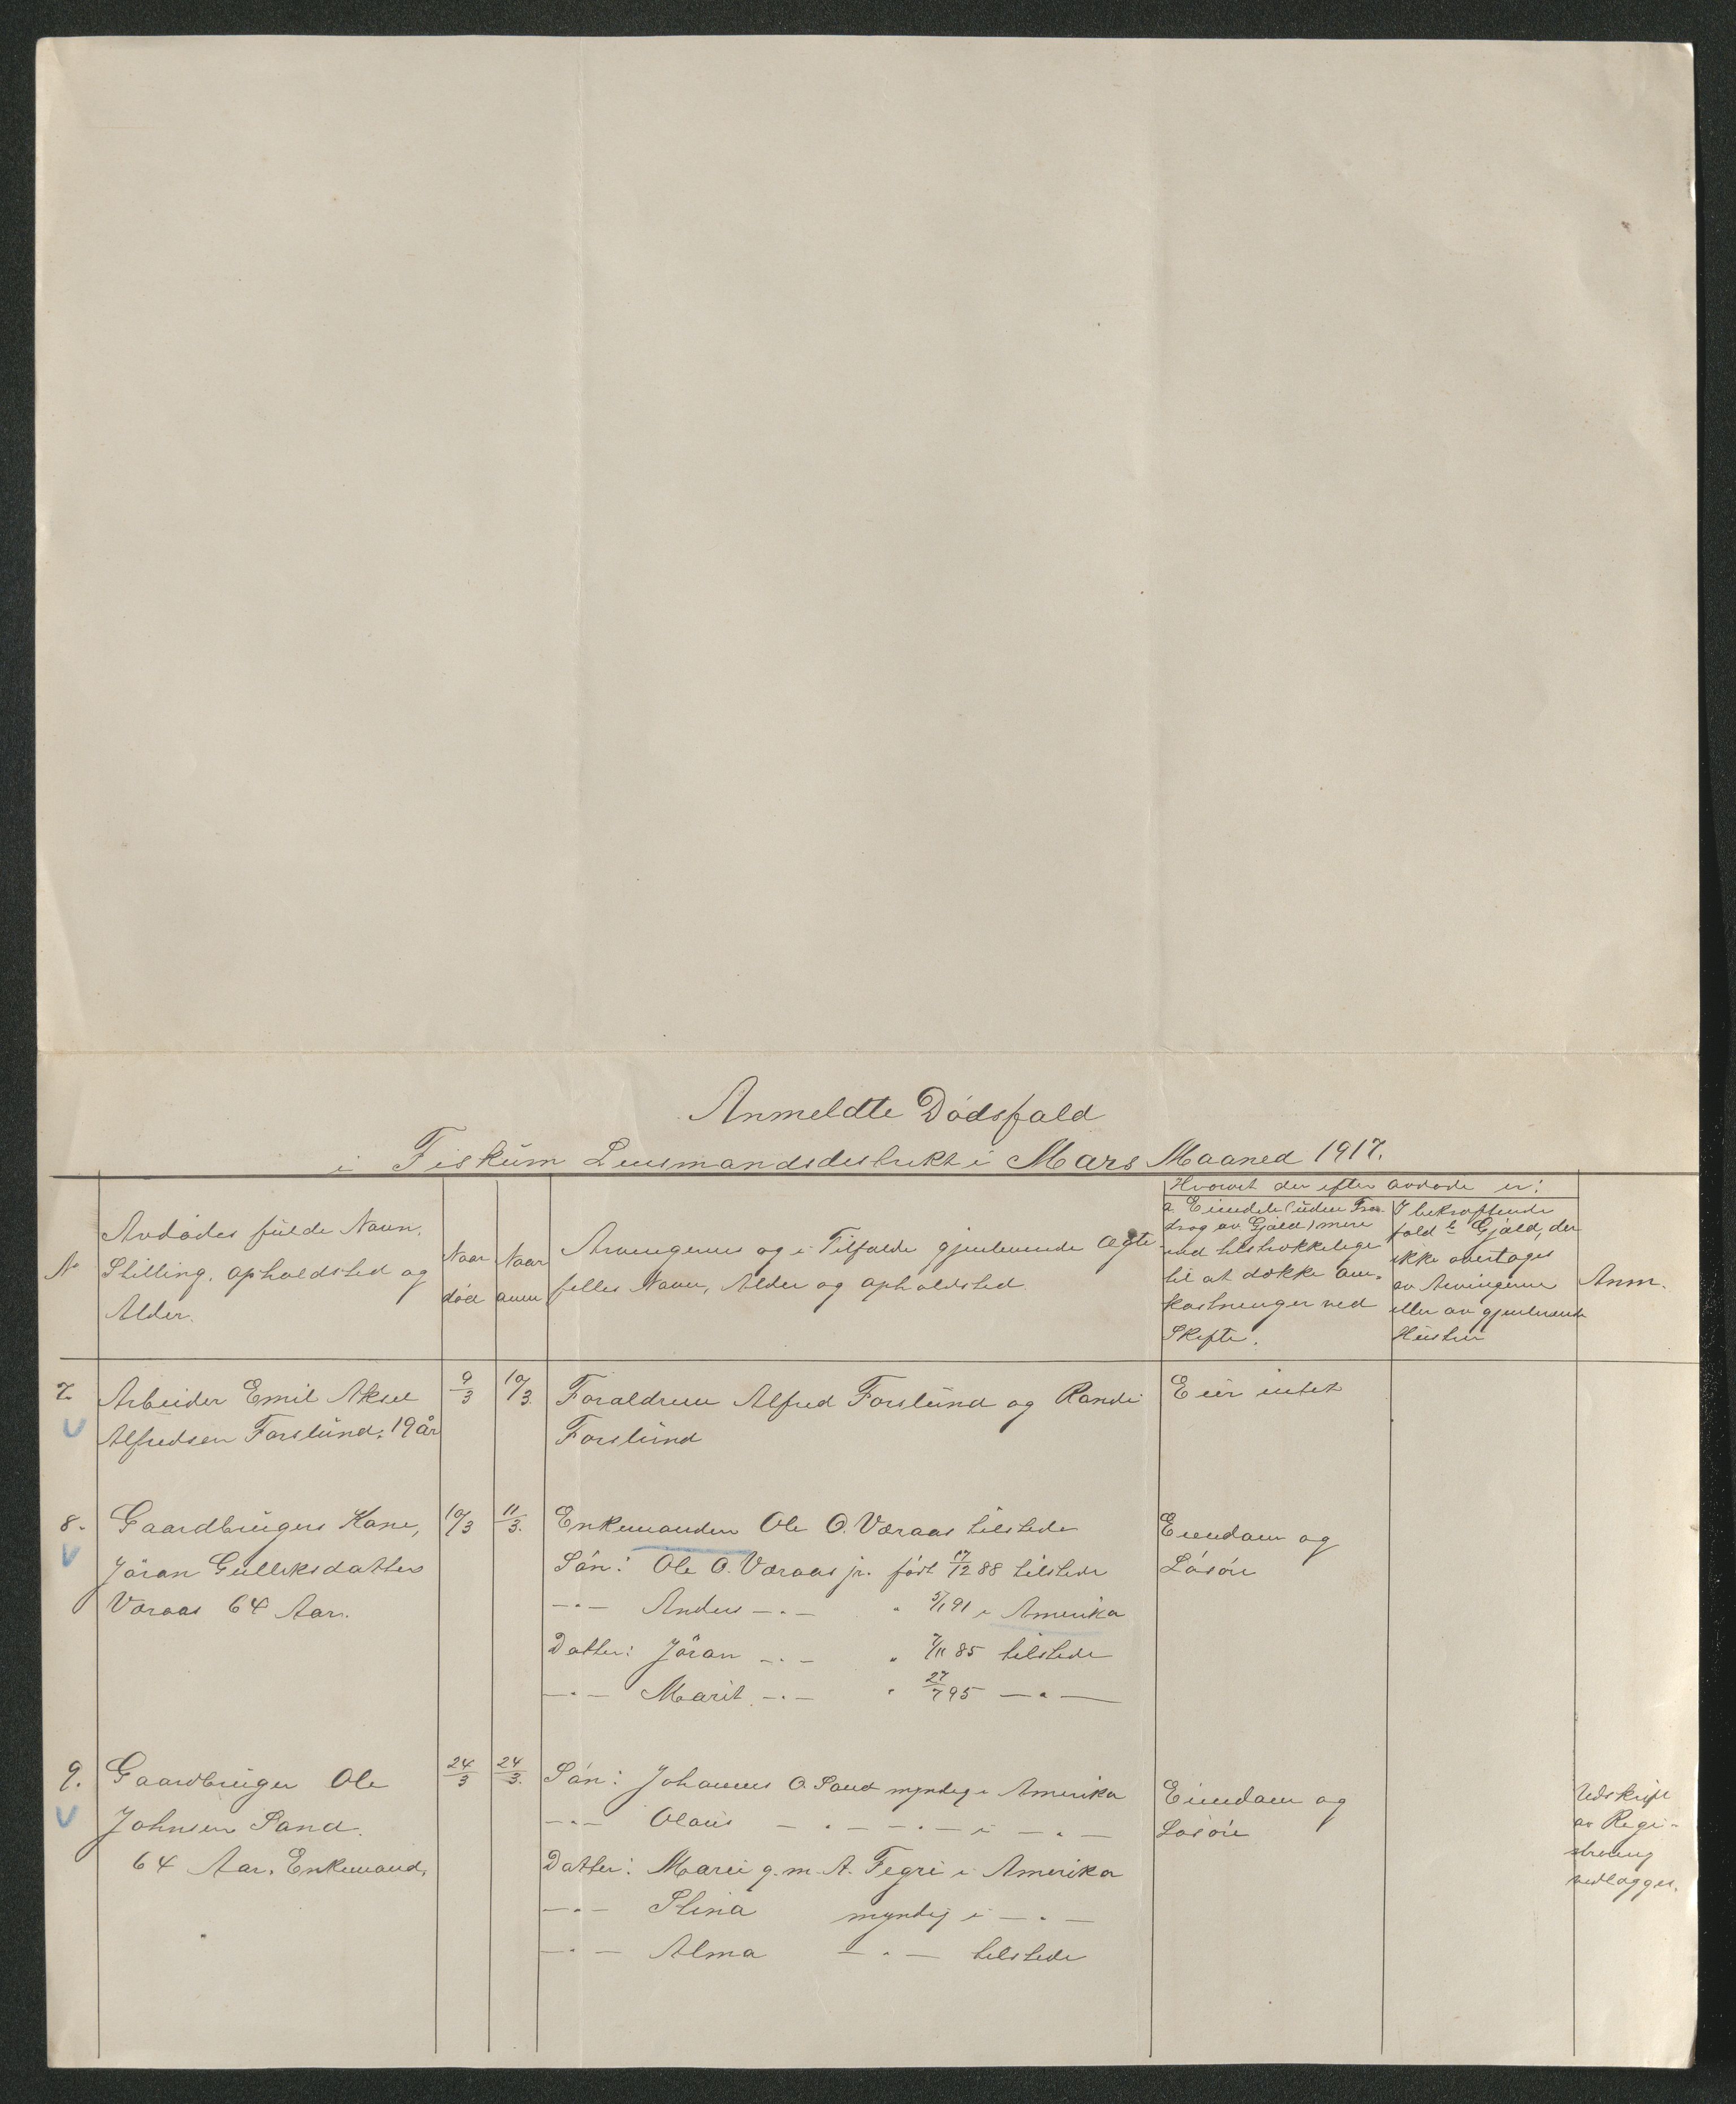 Anmeldte Dødsfald
i Fiskum Lensmandsdistrikt i Mars Maaned 1917.
No
Avdødes fulde Navn,
Stilling, opholdsted og
Alder.
Naar
død
Naar
anm
Arvingernes og i Tilfælde gjenlevende Ægte-
felles Navn, Alder og opholdsted
Hvorvidt der efter avdøde er:
a. Eiendele (uden Fra-
drag av Gjæld) mere
end tilstrækkelige
til at dække om-
kostninger ved
Skifte.
I bekræftende
fald b Gjæld, der
ikke overtages
av Arvingerne
eller av gjenlevende
Hustru
Anm.
7.
Arbeider Emil Aksel
Alfredsen Forslund. 19 år
9/3
10/3.
Forældrene Alfred Forslund og Randi
Forslund
Eier intet
8.
Gaardbrugers Kone,
Jöran Gulliksdatter
Væraas 64 Aar.
10/3
11/3.
Enkemanden Ole O. Væraas tilstede
Søn: Ole O. Væraas jr. født 17/12 88 tilstede
—"— Anders —"— " 5/1 91 i Amerika
Datter: Jöran —"— " 7/11 85 tilstede
—"— Marit —"— " 27/7 95 —"—
Eiendom og
Løsøre
9.
Gaardbruger Ole
Johnsen Sand.
64 Aar. Enkemand.
24/3
24/3.
Søn: Johannes O. Sand myndig i Amerika
—"— Olaus —"— —"— i —"—
Datter: Marie g. m. A. Tegri i Amerika
—"— Stina myndig i —"—
—"— Alma —"— tilstede
Eiendom og
Løsøre
Udskrift
av Regi-
strering
vedlægges.